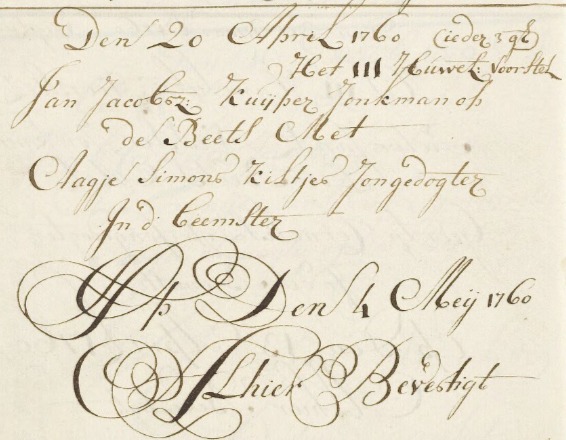 Den 20 April 1760 (ieder 3 gl)
Het III Huwel: Voorstel
Jan Jacobsz: Kuyper Jonkman op
de Beets Met
Aagje Simons Kiltjes Jongedogter
In d' beemster
Op Den 4 Meij 1760
Alhier Bevestigt